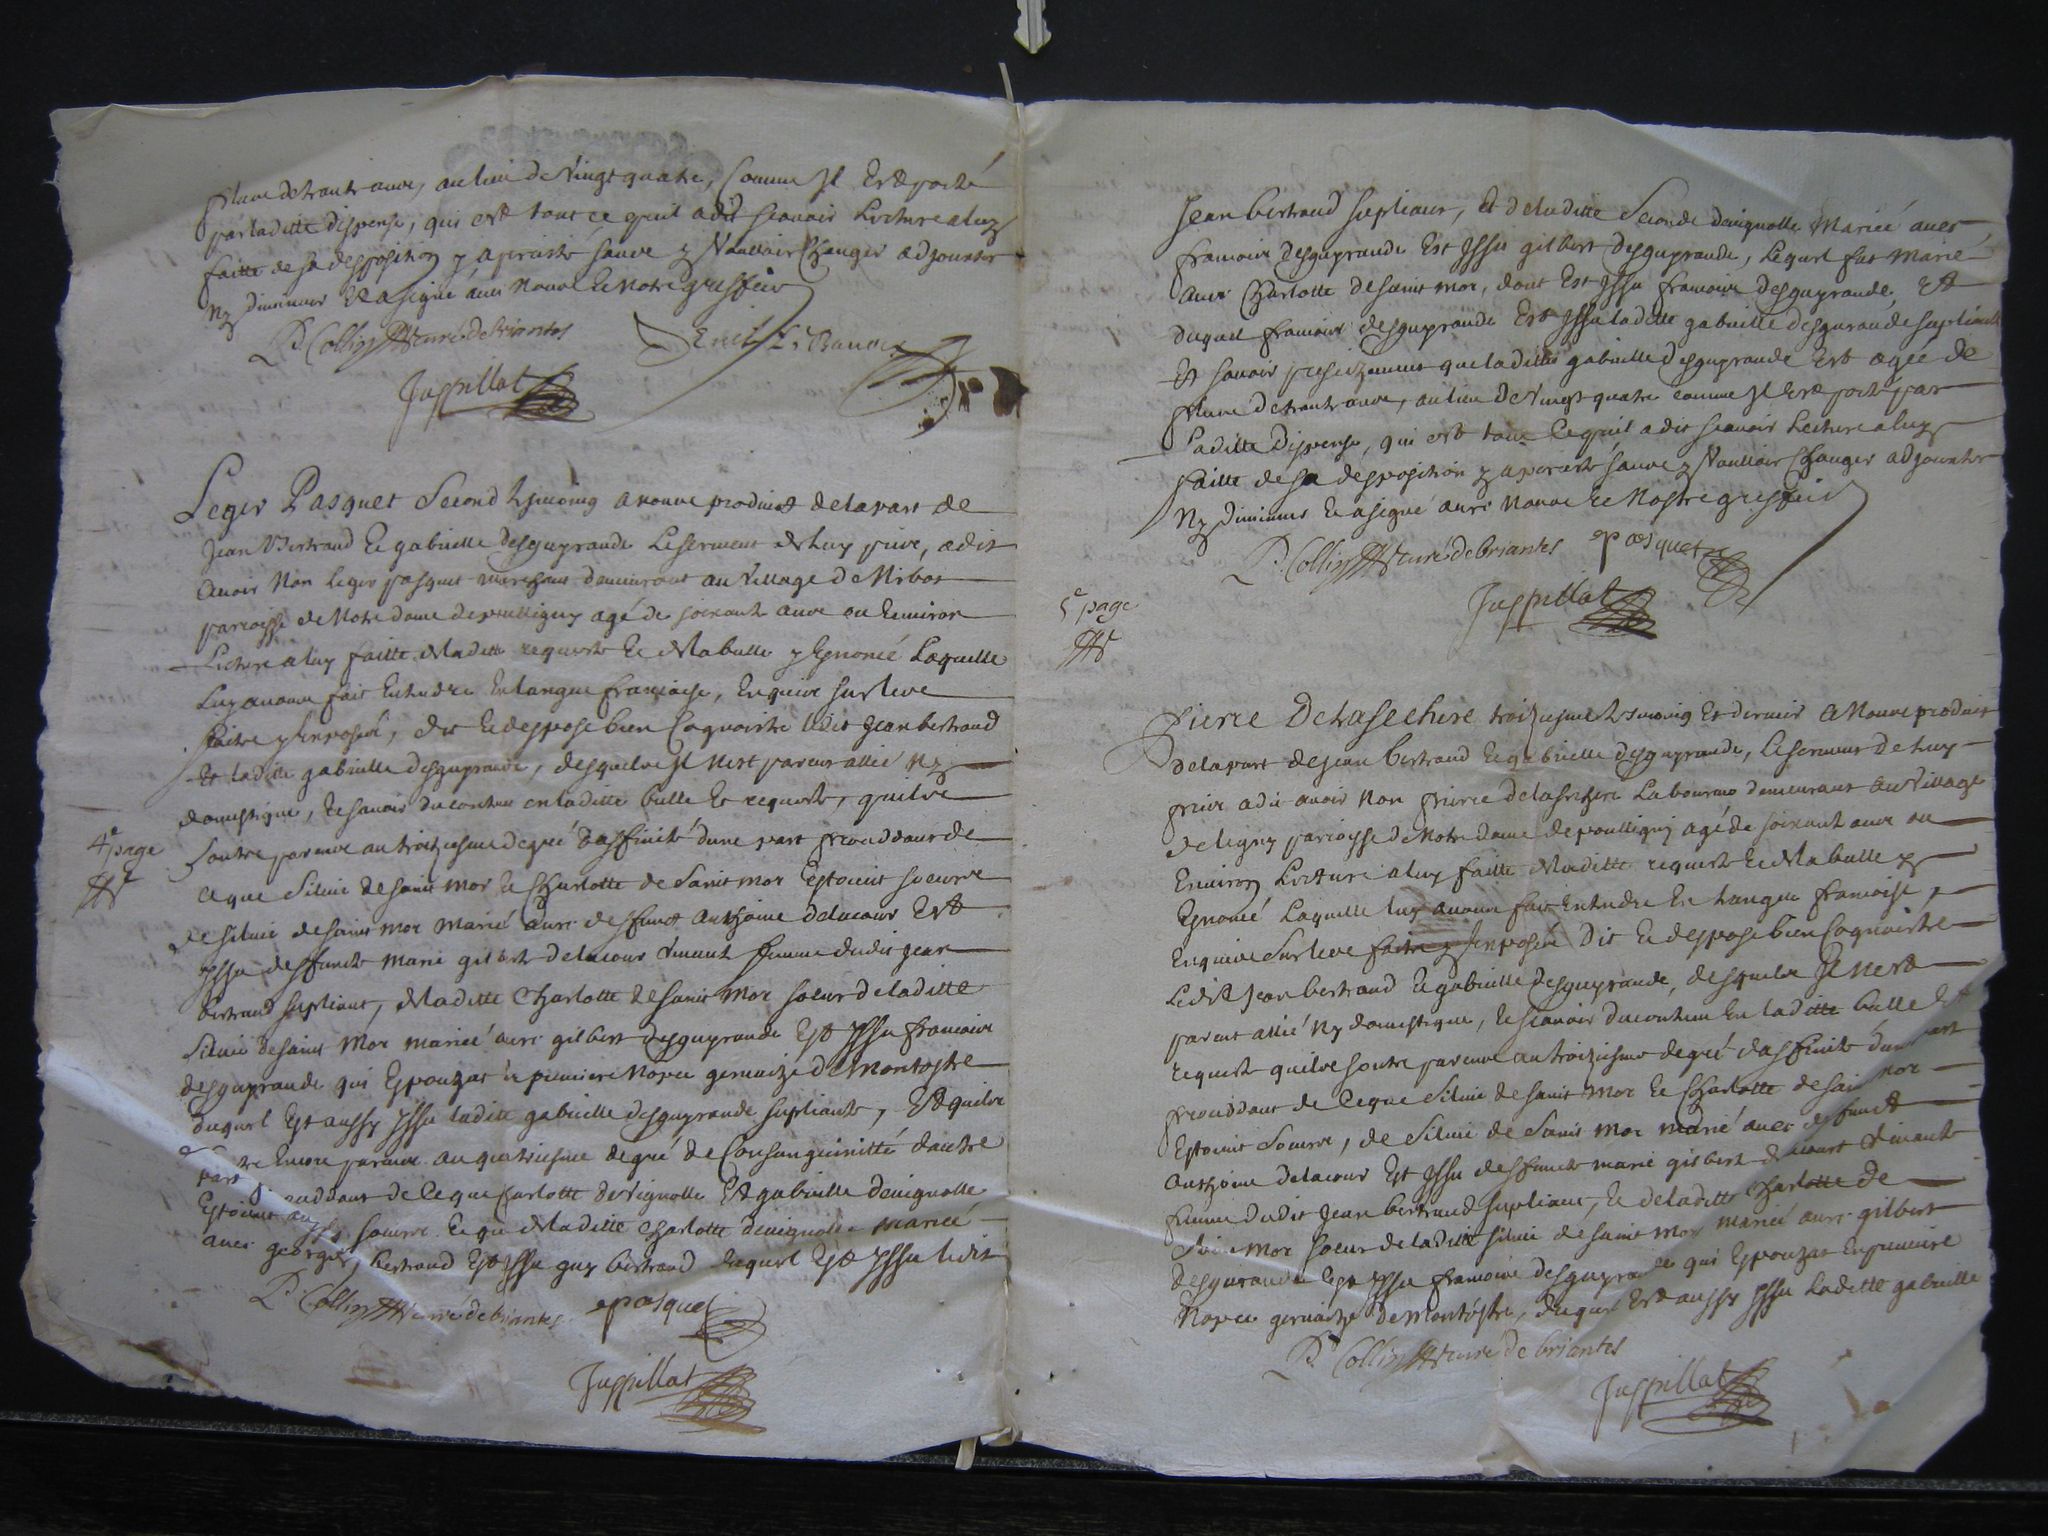 plus de trante ans, au lieu de Vingt quatre, Comme Jl Est porté
par laditte dispense, qui est tout ce quil a dit scavoir Lecture a luy
faitte de sa desposition y a persisté sans y Vouloir Changer adjouxter
Ny diminuer Et a signé avec Nous Et Notre greffier
P. Collin curé de briantes
Juspillat
Leger Pasquet Second tesmoing a nous produict de la part de
Jean Bertrand Et gabrielle desguprande Le serment de luy prins, a dit
avoir Non leger pasquet demeurant au Village de
parroisse de Notre dame de poulligny agé de soixante ans ou Environ
Lecture a luy faitte de laditte requeste Et de la bulle y Enoncé Laquelle
Luy avons fait Entendre En langue francoise, Enquis sur les
faitz y Exposés, dit Et despose bien Cognoistre ledit Jean bertrand
Et laditte gabrielle desguprande, desquels Jl nest parent allié Ny
domestique, Et scavoir du contenu en laditte bulle Et requeste, quils
sont parens au troiziesme degré daffinité dune part proceddant de
ce que Silvie de saint mor Et Charlotte de saint mor Estoient soeurs
de silvie de saint mor marié avec deffunct anthoine delacour Est
yssu deffuncte marie gilberte delacour Vivant femme dudit Jean
bertrand supliant, de laditte Charlotte de saint mor soeur de laditte
Silvie de saint mor mariée avec gilbert desguprande Est yssu francois
desguprande qui Espouzat En premiere Nopce gervaize de montostre
duquel Est aussy yssu laditte gabrielle desguprande supliante, Et quils
sont Encore parens au quatriesme degré de Consanguinitté dautre
part proceddant de Ce que Charlotte de Vignolle Et gabrielle devignolle
Estoient aussy soeurs Et que de laditte Charlotte devignolle mariée
avec georges bertrand Est yssu guy bertrand duquel Est yssu ledit
P. Collin curé de briantes pasquet
Juspillat
4e page
Jean bertrand supliant, Et de laditte Seconde devignolle Mariée avec
francois desguprande Est Jssu gilbert desguprande, Lequel fut marié
avec Charlotte de saint mor, dont Est Jssu francois desguprande, Et
duquel francois desguprande Est Jssu laditte gabrielle desguprande supliante
Et scavoir que laditte gabrielle desguprande Est agée de
plus de trante ans, au lieu de Vingt quatre comme Jl Est porté par
Laditte dispense, qui est tout Ce quil a dit scavoir Lecture a luy
faitte de sa desposition y a persisté sans y Vouloir Changer adjouxter
Ny diminuer Et a signé avec Nous Et Nostre greffier
P. Collin curé de briantes pasquet
Juspillat
5e page
Pierre Delasechere troiziesme tesmoing Et dernier a Nous produict
de la part de Jean bertrand Et gabrielle desguprande, Le serment de luy
prins a dit avoir Non pierre delasechere Laboureur demeurant au Village
de ligny parroysse de Notre dame de poulligny agé de soixante ans ou
Environ Lecture a luy faitte de laditte requeste Et de la bulle y
Enoncé Laquelle luy avons fait Entendre En langue francoise,
Enquis Sur les faitz y Exposés Dit Et despose bien Cognoistre
Ledit Jean bertrand Et gabrielle desguprande, desquels Jl nest
parent allié Ny domestique, Et scavoir du contenu En laditte bulle Et
requeste quils sont parens au troiziesme degré daffinité dune part
proceddant de Ce que Silvie de saint mor Et Charlotte de saint mor
Estoient Soeurs, de Silvie de Saint mor marié avec deffunct
anthoine delacour Est Jssu deffuncte marie gilberte delacour Vivante
femme dudit Jean bertrand supliant, Et de laditte Charlotte de
Saint mor soeur de laditte silvie de saint mor mariée avec gilbert
desguprande Est yssu francois desguprande qui Espouzat En premiere
Nopce gervaize de montostre, duquel Est aussy yssu Laditte gabrielle
P. Collin curé de briantes
Juspillat